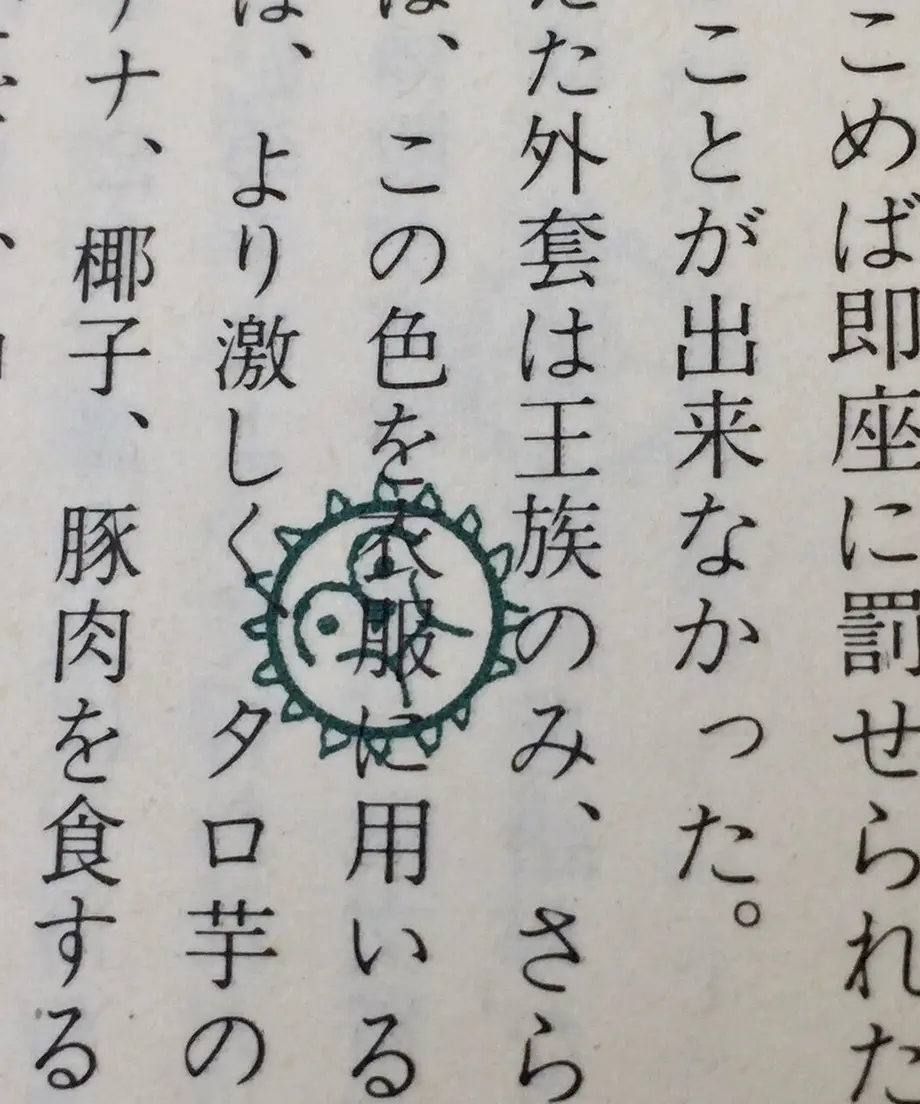 こめば即座に罰せられた
ことが出来なかった。
た外套は王族のみ、さら
は、この色を衣服に用いる
は、より激しく、タロ芋の
ナ、椰子、豚肉を食する